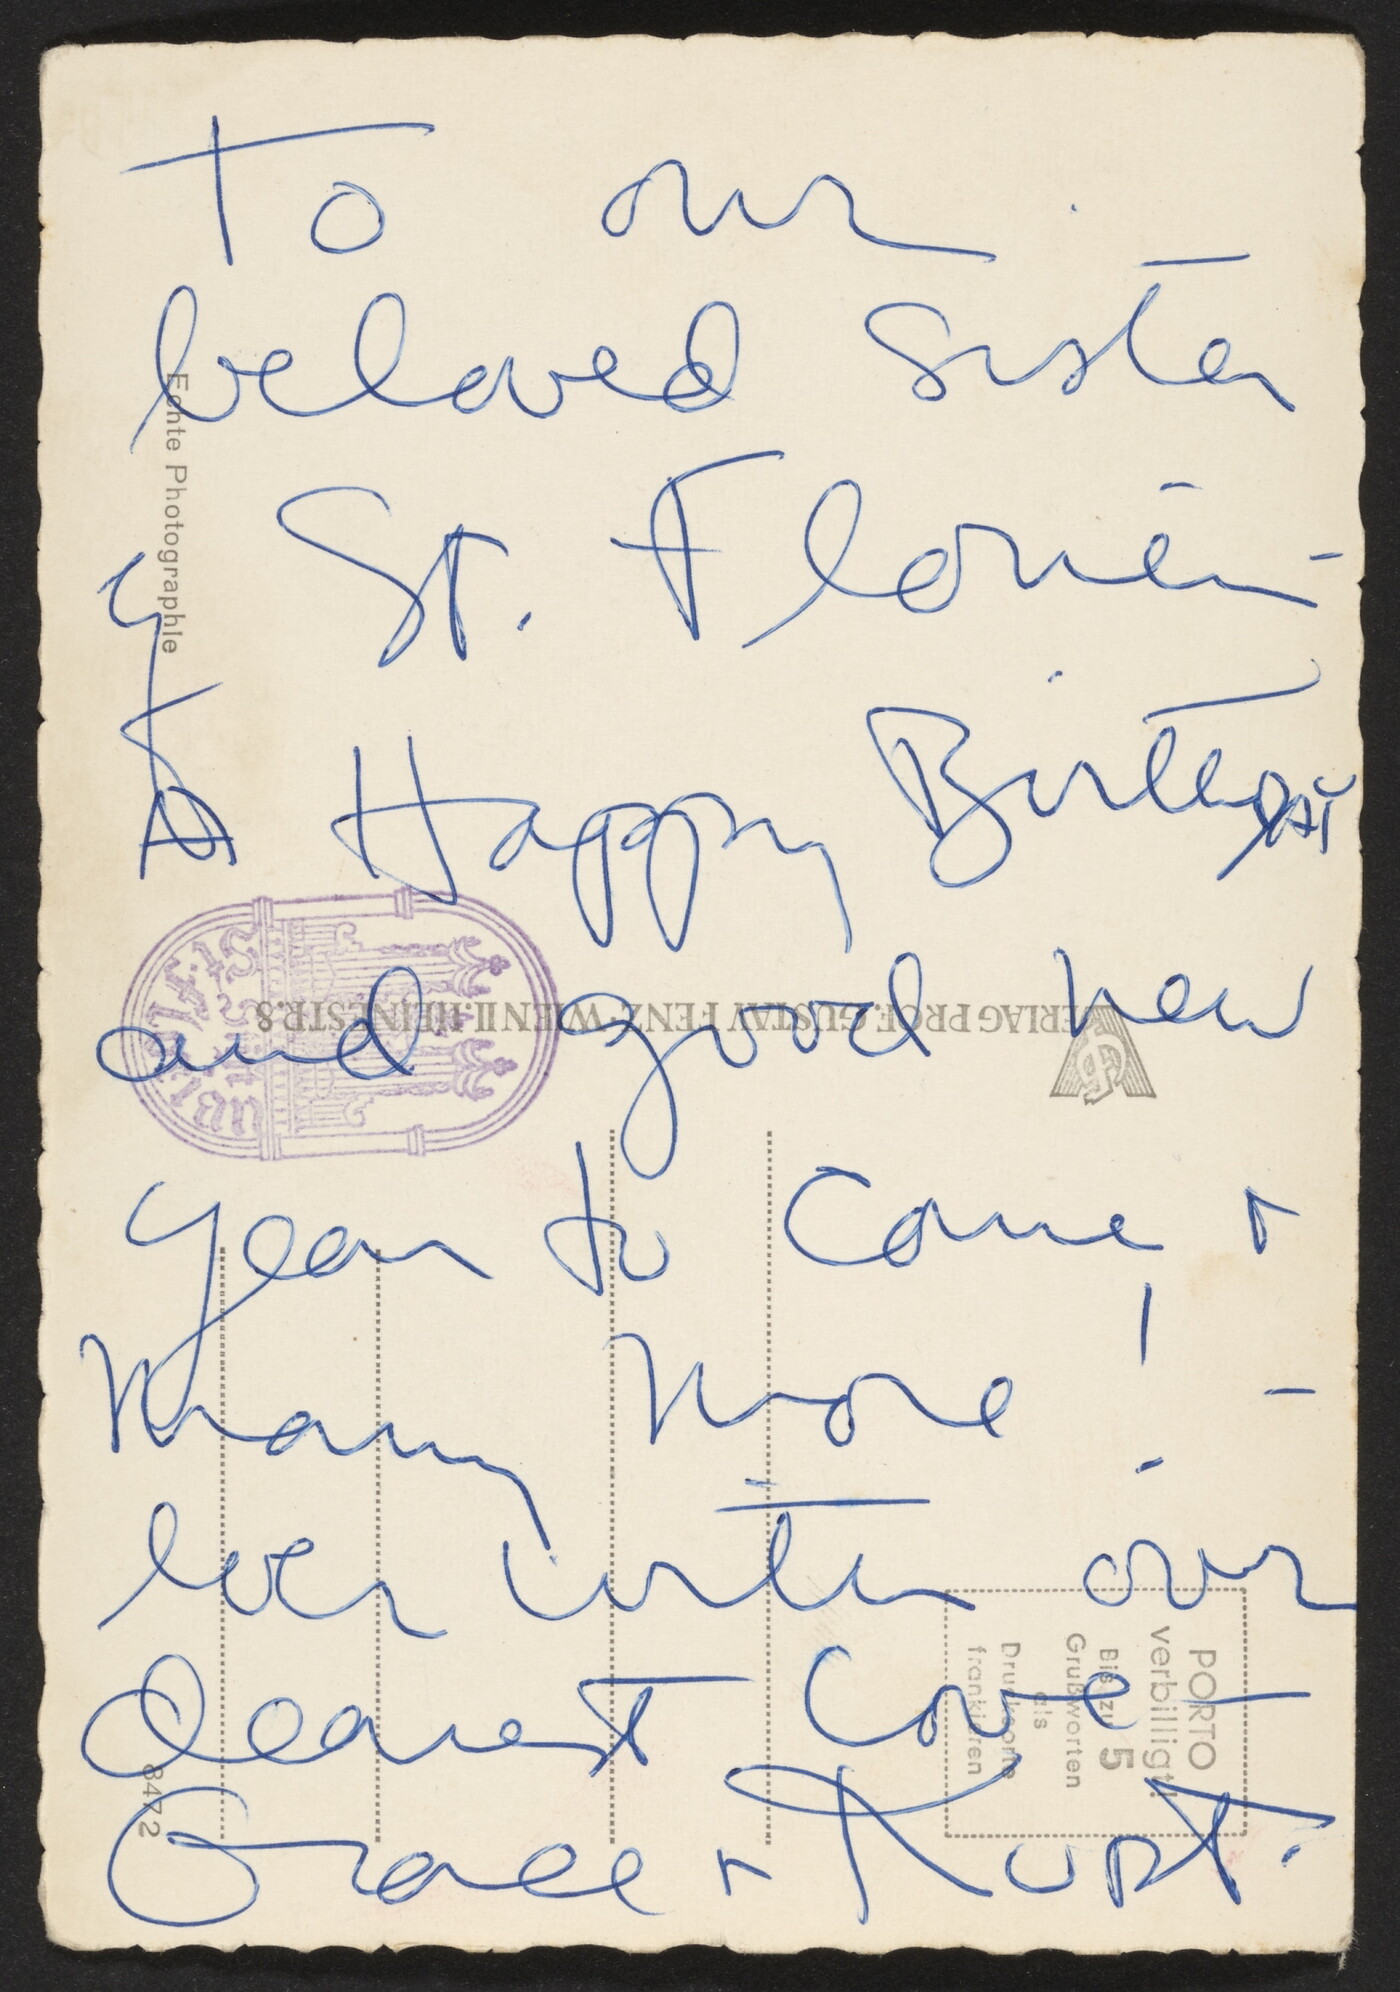 To our
beloved Sister
St. Florian -
A Happy Birthday
and good new
year to come +
many more! -
ever with our
dearest Love -
Grace + Kurt.
Echte Photographie
VERLAG PROF. GUSTAV FENZ·WIEN II. HEINESTR.8
PORTO
verbilligt!
Bis zu 5
Grußworten
als
Drucksorte
frankieren
8472